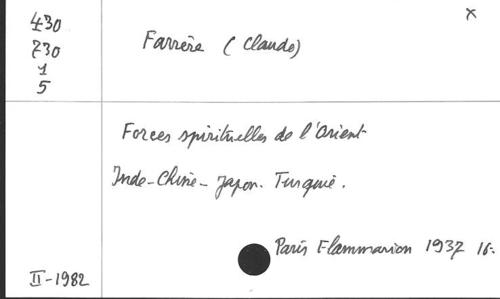 x
430
730
1
5
Farrère (Claude)
Forces spirituelles de l'Orient
Inde-Chine-Japon. Turquie.
Paris Flammarion 1937 16:
II-1982